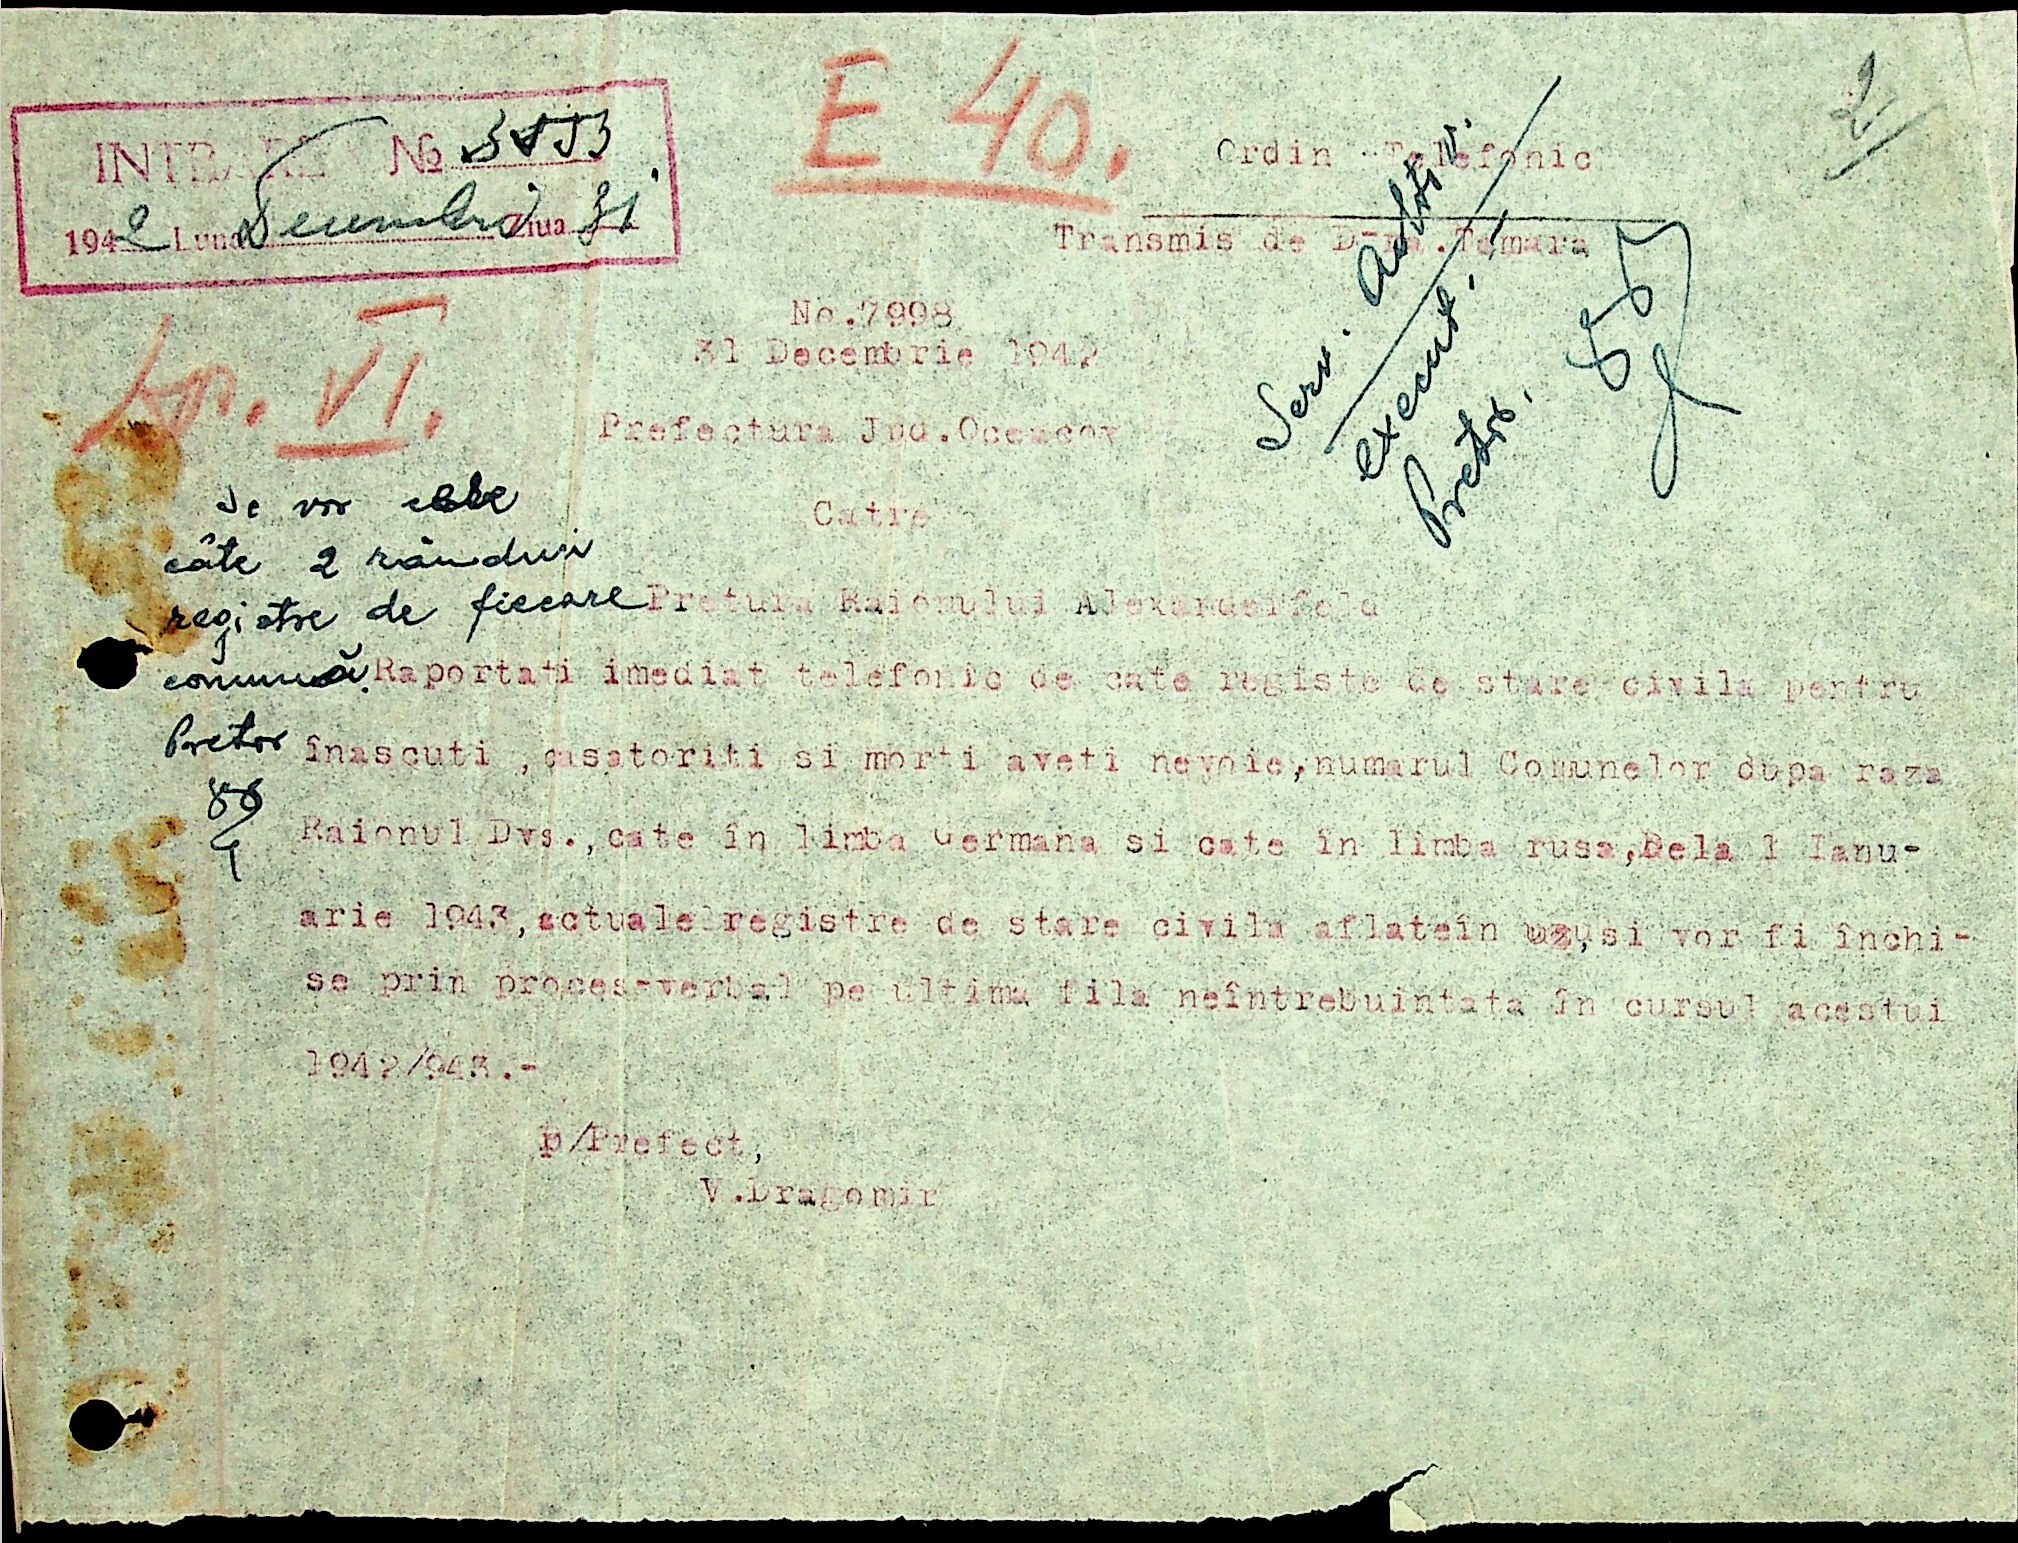 E 40.
2
INTRARE No
1942 Luna Decembrie Ziua 31
Ordin Telefonic
Transmis de D-na.Tamara
Serv. Astiv.
execut,
Pretor,
No.7998
31 Decembrie 1942
VI.
Prefectura Jud.Oceacov
Catre
Se vor
câte 2 rânduri
registre de fiecare
comună.
Pretor
Pretura Raionului Alexanderfeld
Raportati imediat telefonic de cate registe de stare civila pentru
înascuti ,casatoriti si morti aveti nevoie,numarul Comunelor dupa raza
Raionul Dvs.,cate în limba Germana si cate în limba rusa,Dela 1 Ianu-
arie 1943,actuale registre de stare civila aflateîn uz,si vor fi închi-
se prin proces-verbal pe ultima fila neîntrebuintata în cursul acestui
1942/943.-
p/Prefect,
V.Dragomir